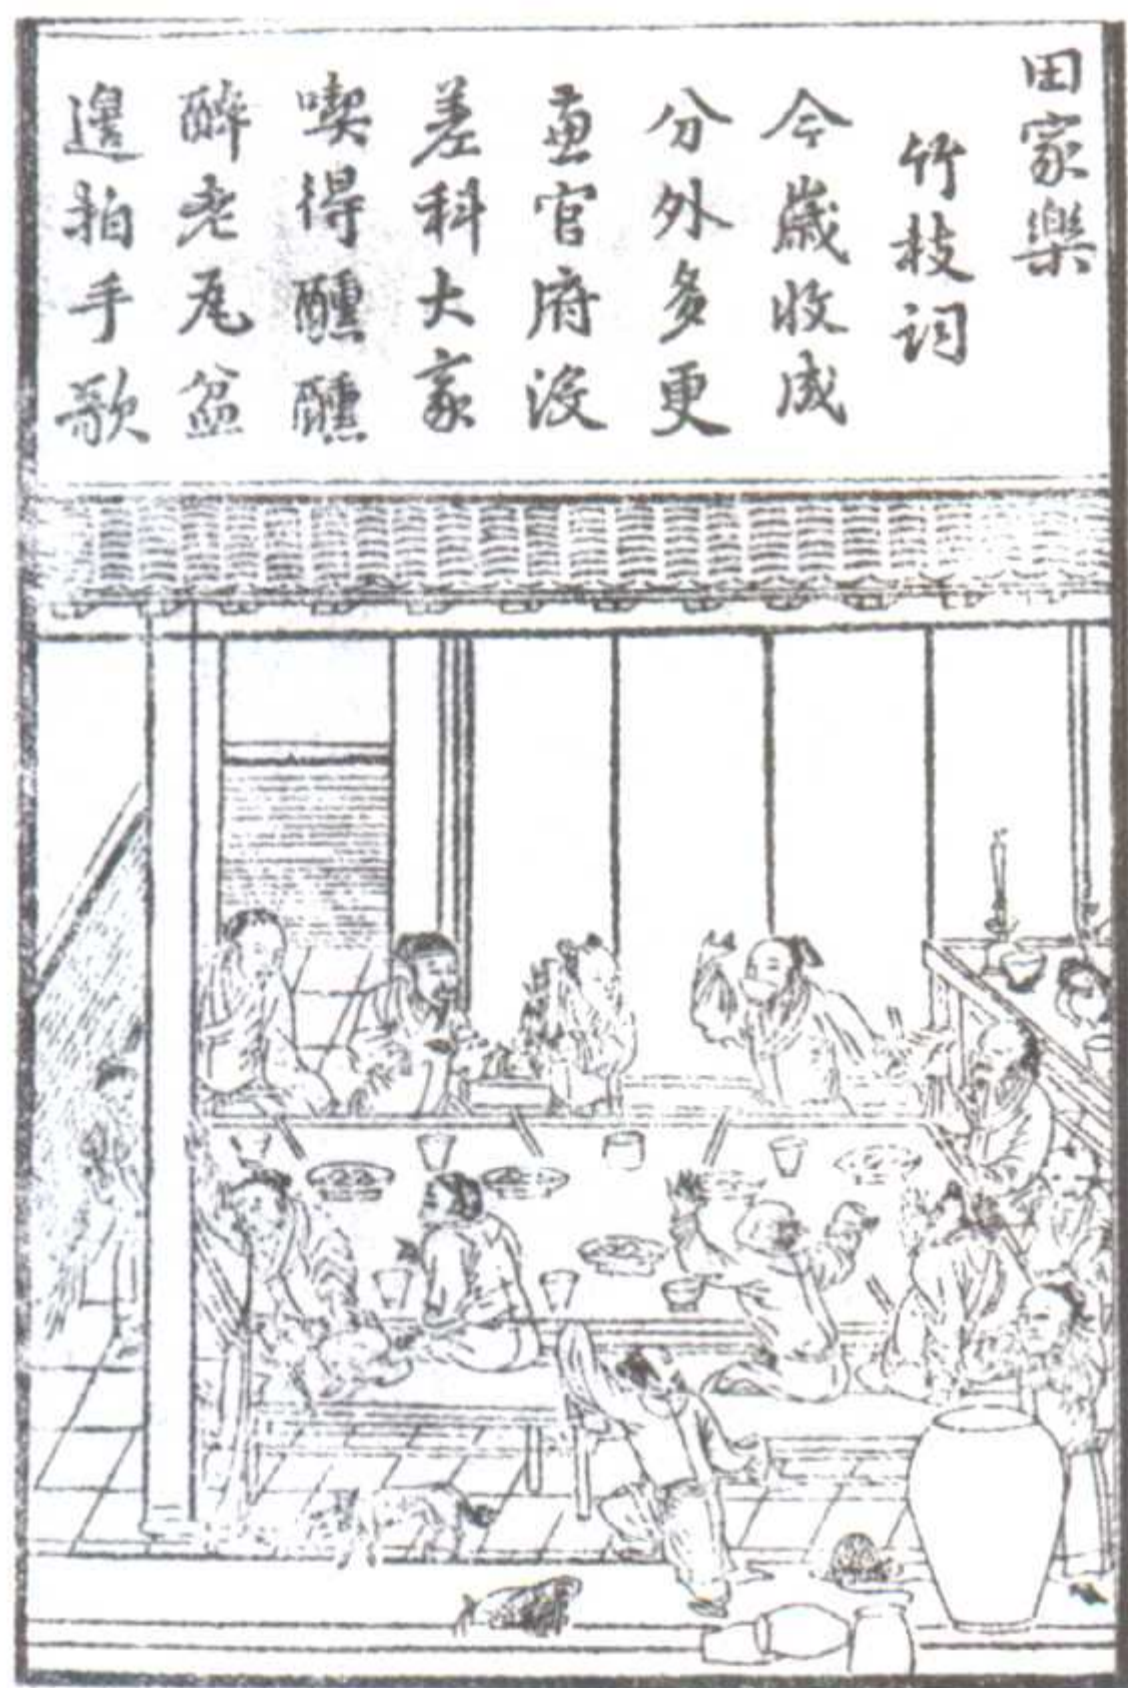 田家樂
竹枝词
今歲收成
分外多更
蒹官府沒
差科大家
喫得醺醺
醉老瓦盆
邊拍手歌